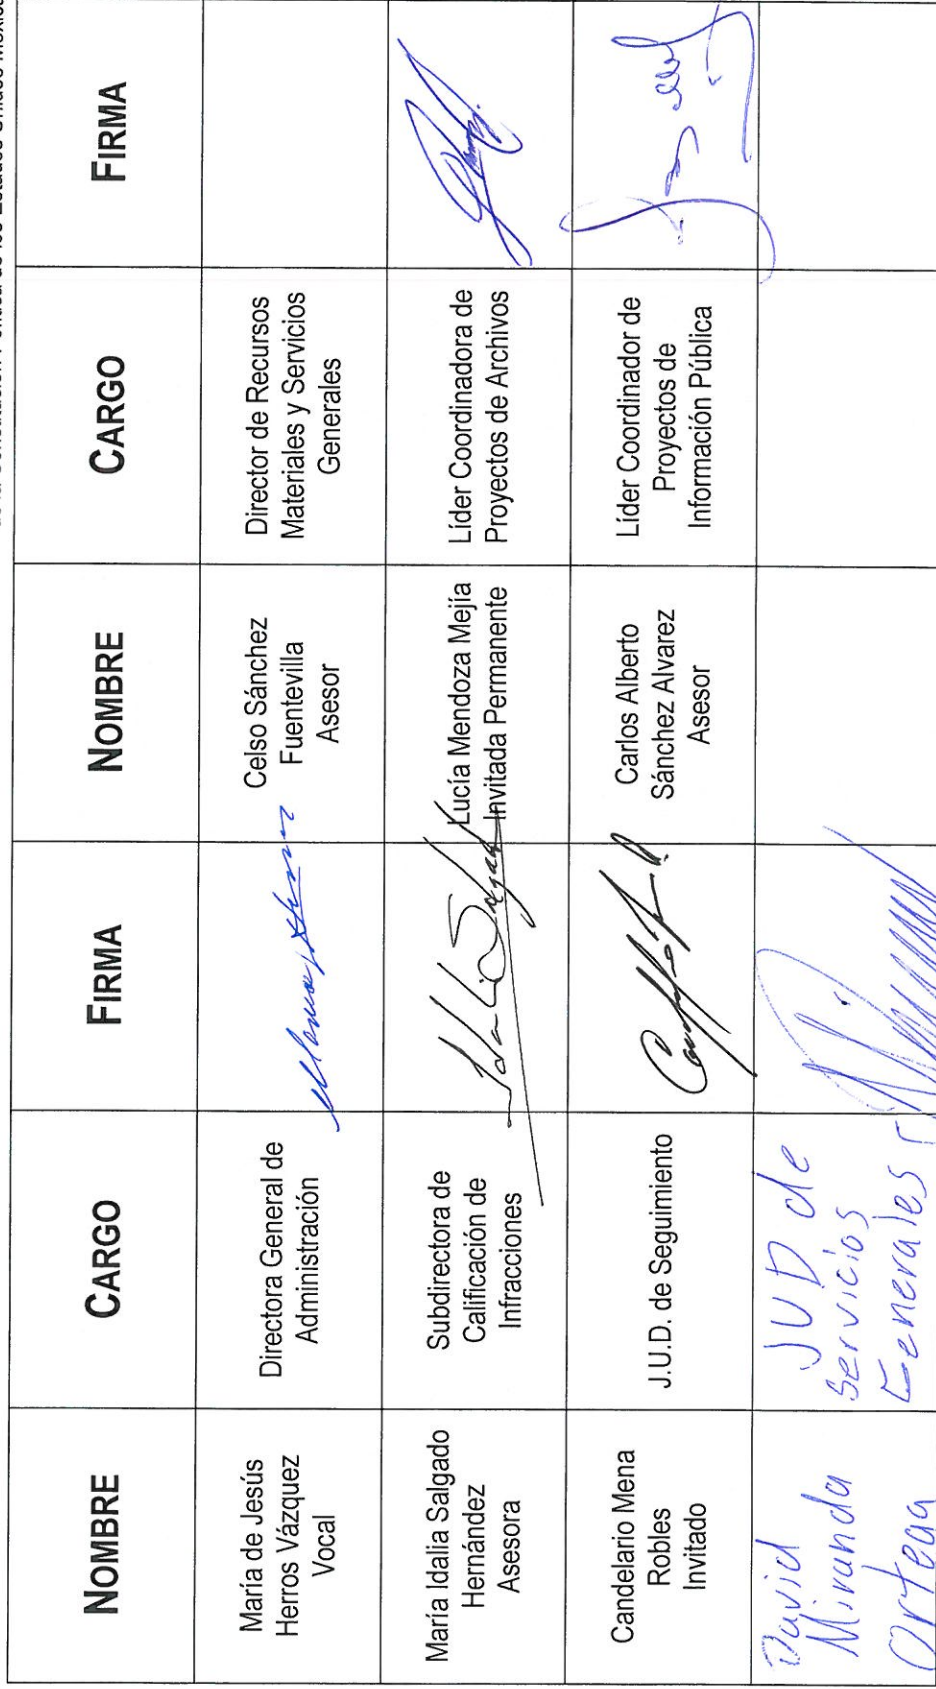 de la Constitución Política de los Estados Unidos
NOMBRE CARGO FIRMA NOMBRE CARGO FIRMA
María de Jesús
Herros Vázquez
Vocal
Directora General de
Administración
Celso Sánchez
Fuentevilla
Asesor
Director de Recursos
Materiales y Servicios
Generales
María Idalia Salgado
Hernández
Asesora
Subdirectora de
Calificación de
Infracciones
Lucía Mendoza Mejía
Invitada Permanente
Líder Coordinadora de
Proyectos de Archivos
Candelario Mena
Robles
Invitado
J.U.D. de Seguimiento
Carlos Alberto
Sánchez Alvarez
Asesor
Líder Coordinador de
Proyectos de
Información Pública
David
Miranda
Ortega
JUD de
Servicios
Generales